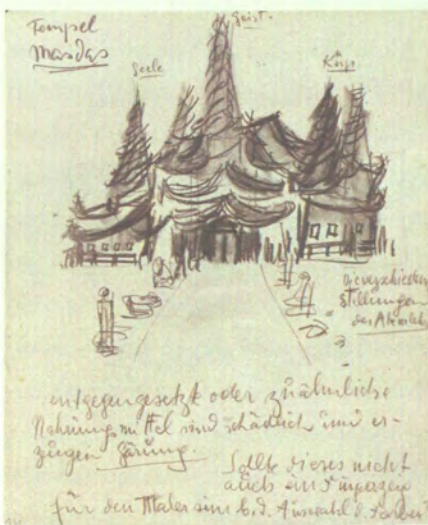 Tempel
Masdas
Geist.
Seele
Körp
Die verschieden
Stellungen
der Atemlehre
entgegengesetzt oder zu ähnliche
Nahrungsmittel sind schädlich und er-
zeugen Gärung.
Sollte dieses nicht
auch ein Fingerzeig
für den Maler sein b. d. Auswahl d. Farben?